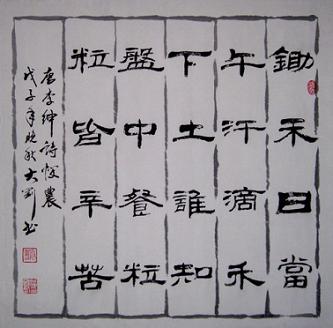 鋤禾日當
午汗滴禾
下土誰知
盤中餐粒
粒皆辛苦
唐李紳詩憫農
戊子年晚秋大劉书